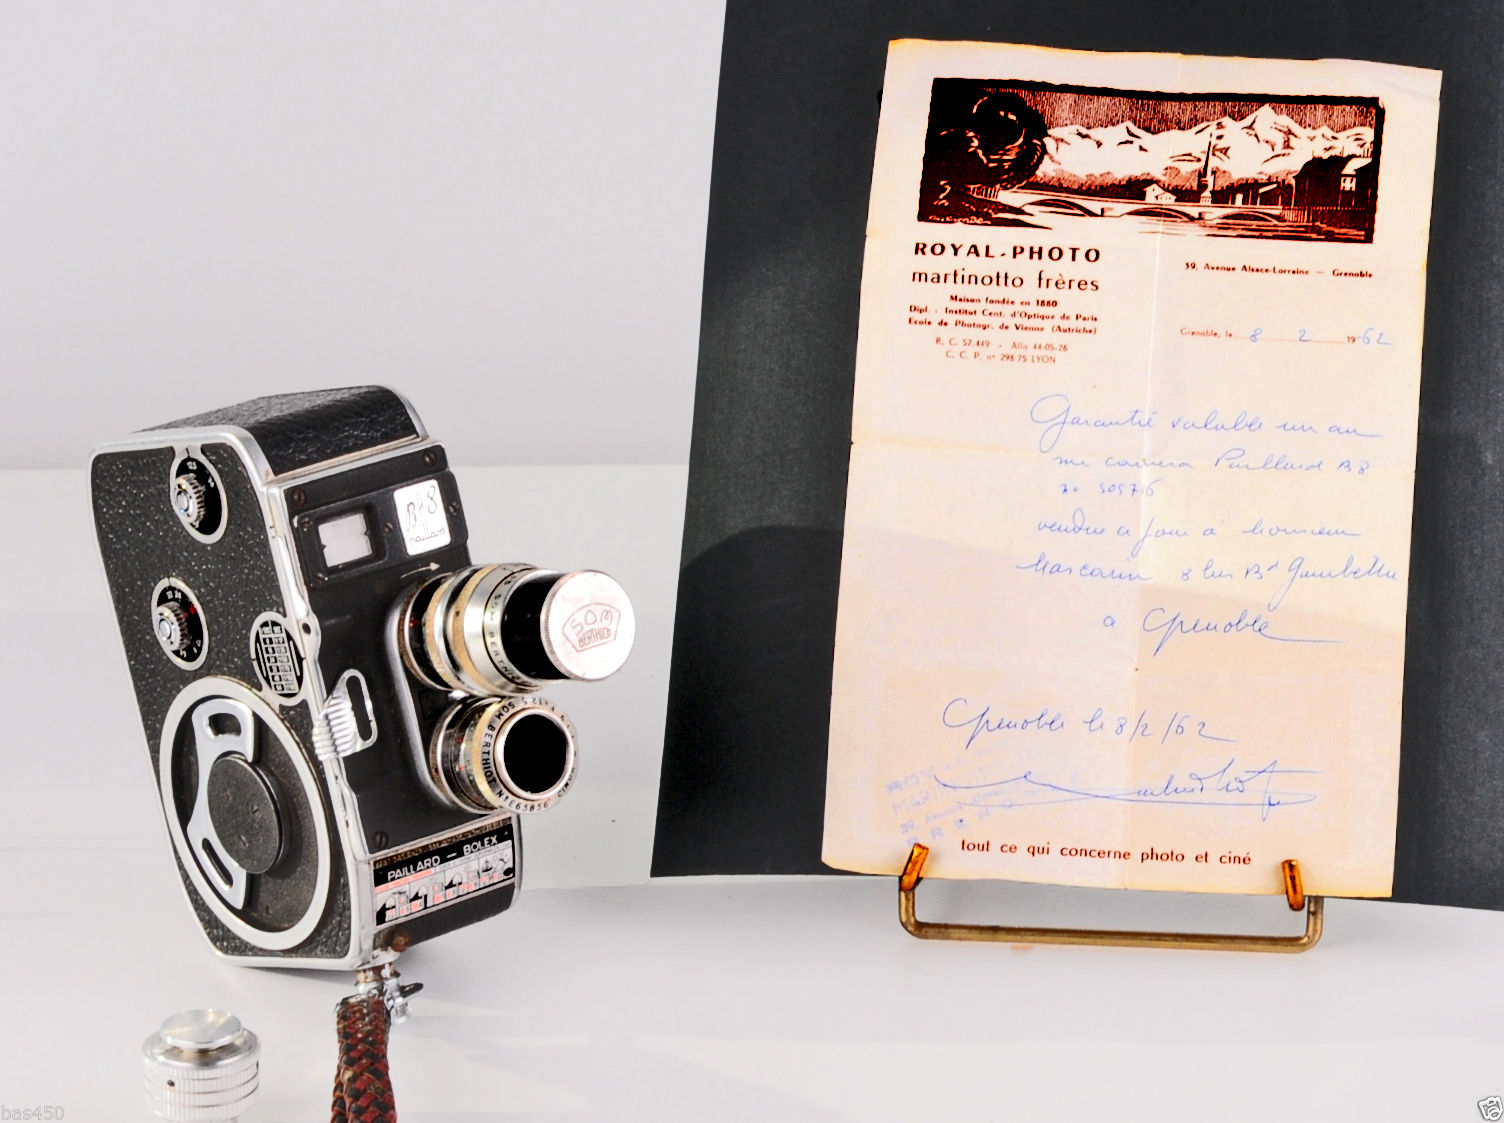 ROYAL-PHOTO
martinotto frères
Maison fondée en 1880
Dipl. : Institut Cent. d'Optique de Paris
Ecole de Photogr. de Vienne (Autriche)
R. C. 57.449 - Allo 44-05-26
C. C. P. n° 298 75 LYON
59, Avenue Alsace-Lorraine — Grenoble
Grenoble, le 8 2 1962
Garantie valable un an
camera Paillard B8
vendue ce jour à Monsieur
8 bis Bd Gambetta
à Grenoble
Grenoble le 8/2/62
tout ce qui concerne photo et ciné
B8
Paillard
SOM
BERTHIOT
SOM BERTHIOT
SOM BERTHIOT
PAILLARD - BOLEX
bas450